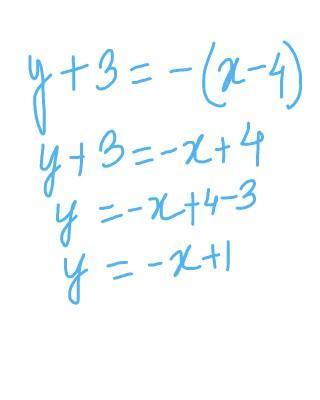 y+3=-(x-4)
y+3=-x+4
y=-x+4-3
y=-x+1